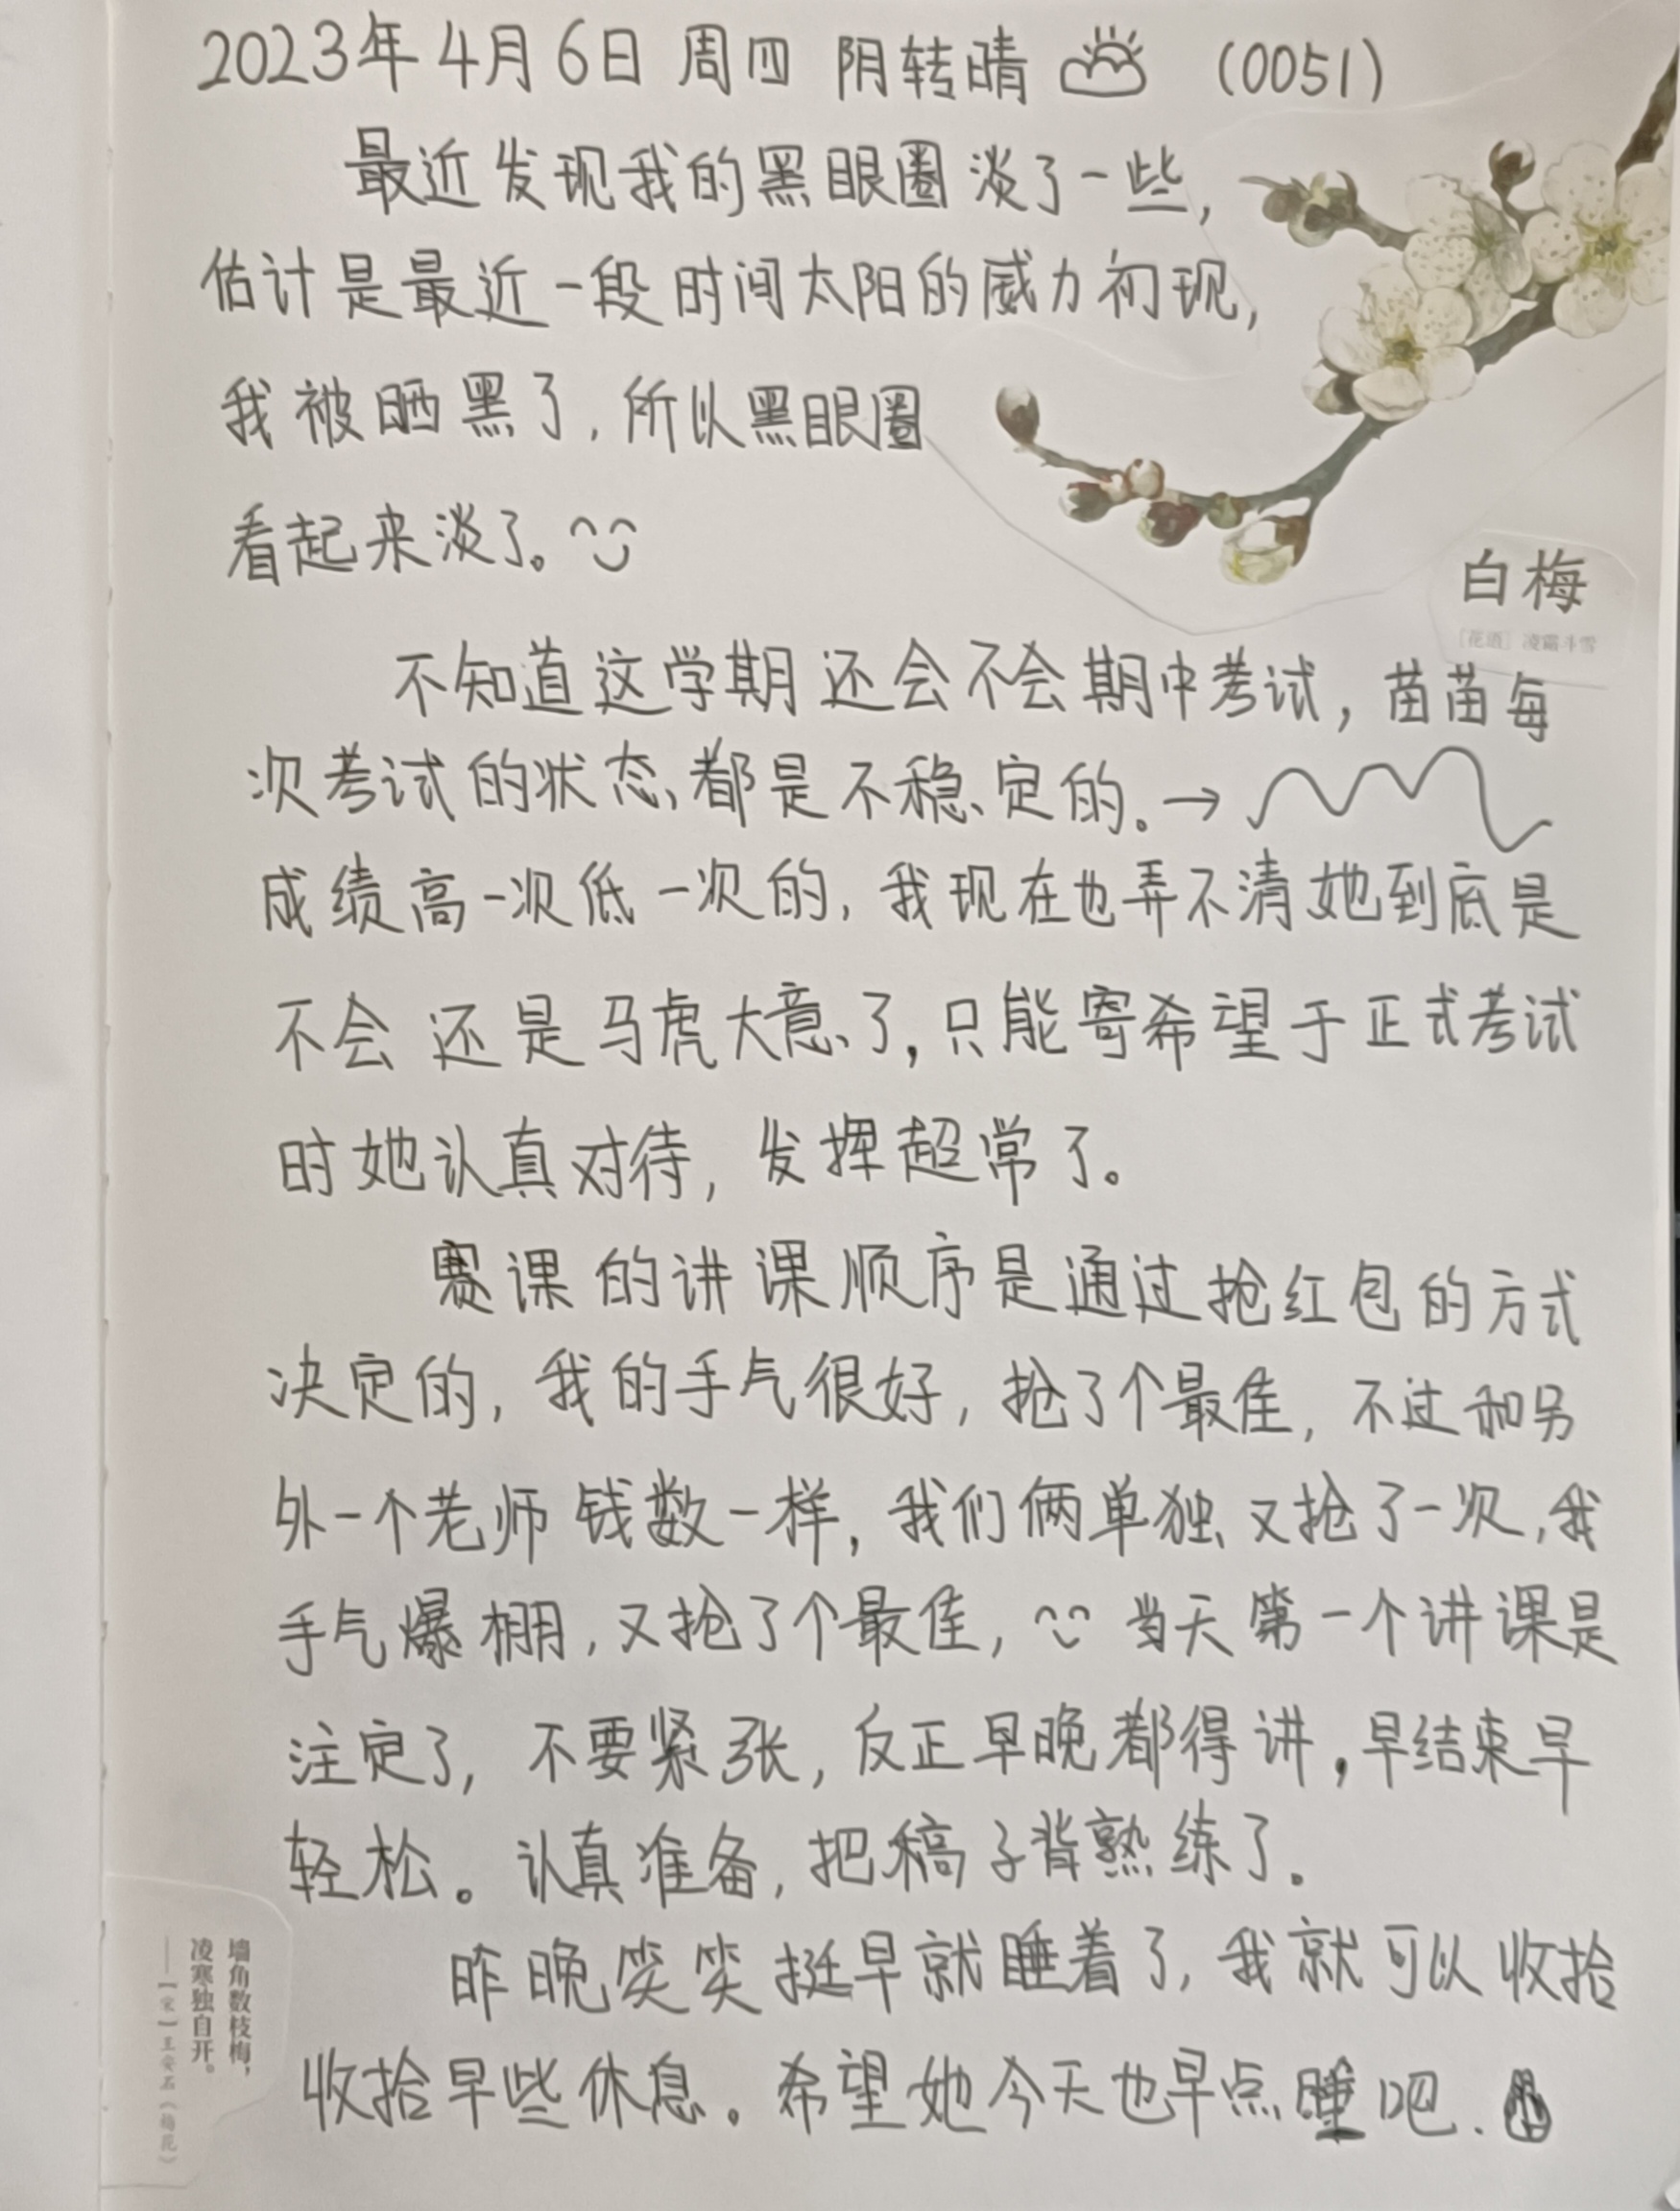 2023年4月6日 周四 阴转晴 (0051)
最近发现我的黑眼圈淡了一些,
估计是最近一段时间太阳的威力初现,
我被晒黑了,所以黑眼圈
看起来淡了。
白梅
[花语] 凌霜斗雪
不知道这学期还会不会期中考试,苗苗每
次考试的状态都是不稳定的。→
成绩高一次低一次的,我现在也弄不清她到底是
不会还是马虎大意了,只能寄希望于正式考试
时她认真对待,发挥超常了。
赛课的讲课顺序是通过抢红包的方式
决定的,我的手气很好,抢了个最佳,不过和另
外一个老师钱数一样,我们俩单独又抢了一次,我
手气爆棚,又抢了个最佳,当天第一个讲课是
注定了,不要紧张,反正早晚都得讲,早结束早
轻松。认真准备,把稿子背熟练了.
昨晚笑笑挺早就睡着了,我就可以收拾
收拾早些休息。希望她今天也早点睡吧.
墙角数枝梅,
凌寒独自开。
——【宋】王安石《梅花》